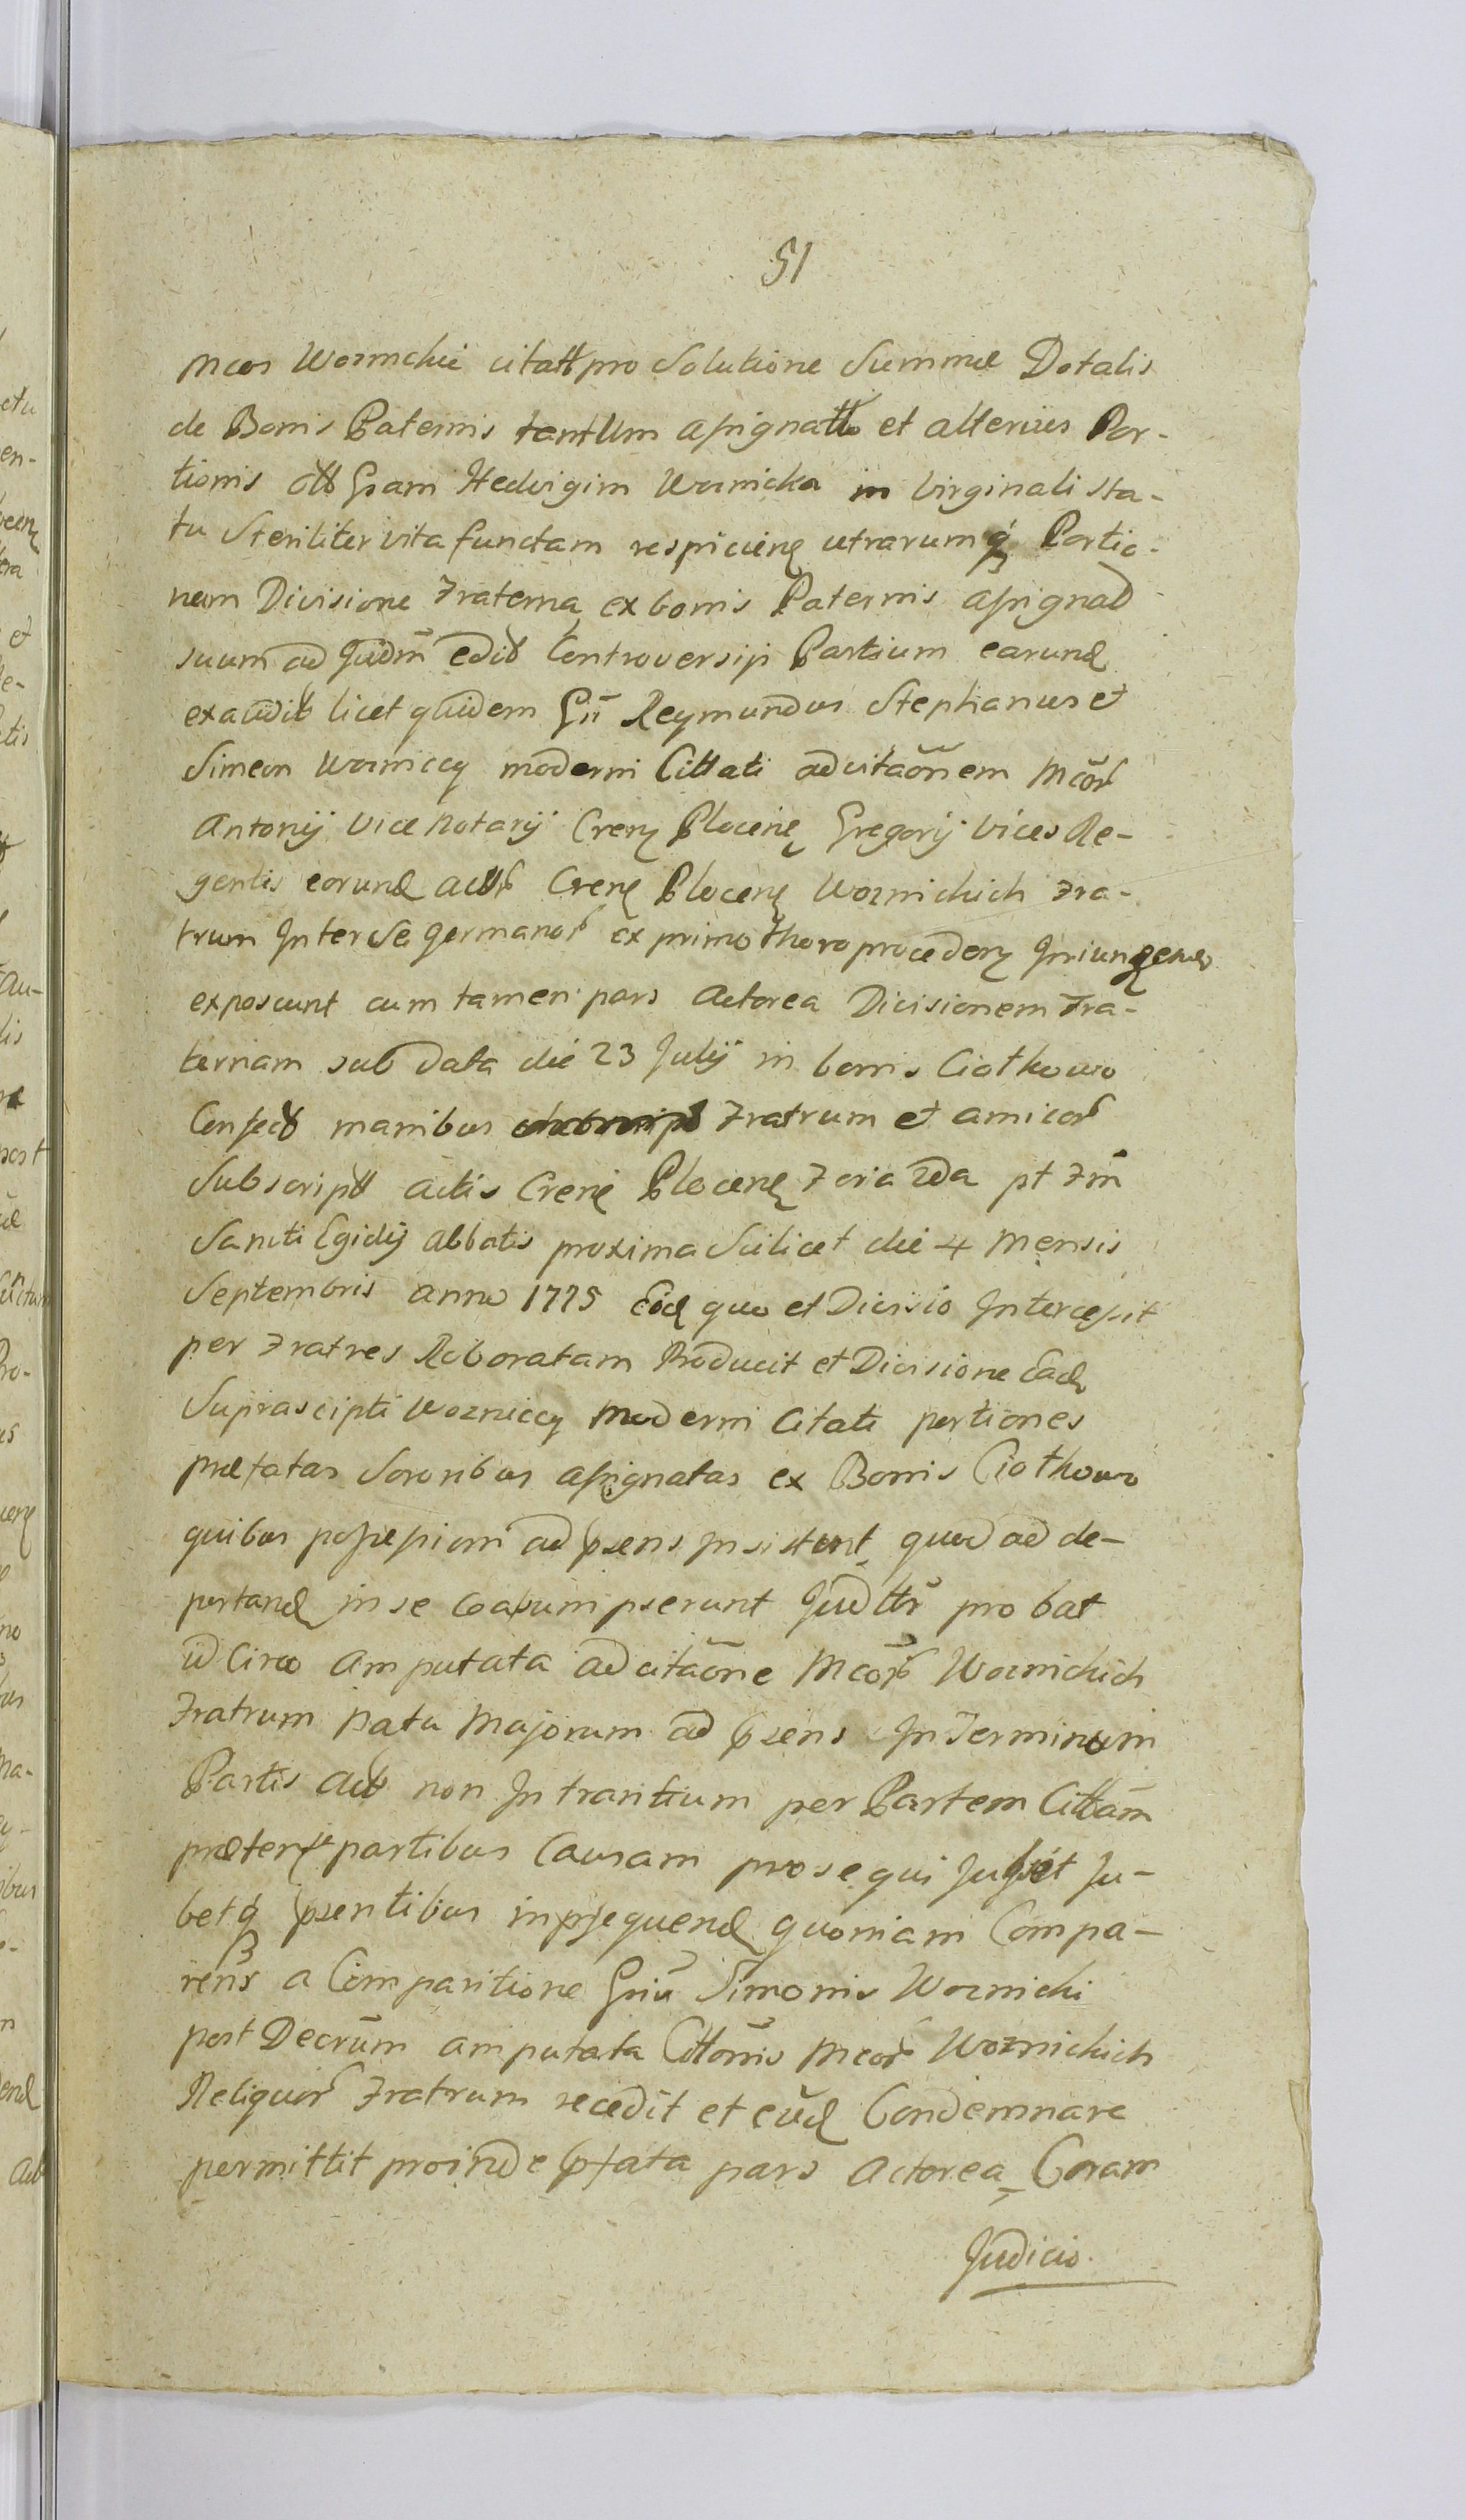 51
Mcos Woznickie citatt pro Solutione Summæ Dotalis
de Bonis Paternis tantum assignatt et alterius Por-
tionis ott Gram Hedvigim Woznicka in Virginali sta-
tu Steriliter vita functam respicienę utrarumq Portio-
num Divisione Fraterna ex bonis Paternis assignad
suum ad Judm Controversijs Partium earund
exaudit licet quidem Gn Reymundus Stephanus et
Simeon Wozniccy moderni Cittati adcitaõnem Mcor
Antonij Vice Notarij Crenę Plocenę Gregorij Vices Re-
gentis eorund actor Crenę Plocenę Woznickich Fra-
trum Inter Se Germanor ex primo thoro proceden Iniungend
exposcunt cum tamen pars Actorea Divisionem Fra-
ternam sub data die 23 Julij in bonis Ciothowo
Confect manibus Fratrum et amicor
Subscript actis Crenę Plocenę Feria 2da pt Fm
Sancti Egidij Abbatis proxima Scilicet die 4 Mensis
Septembris Anno 1775 Eod quo et Divisio Intercessit
per Fratres Roboratam Producit et Divisione Ead
Suprascipti Wozniccy moderni Citati portiones
præfatas Sororibus assignatas ex Bonis Ciothowo
quibus possessioni ad psens Insistunt quod ad de-
portand in se coassumpserunt Judttr probat
id Circo amputata adcitaõne Mcor Woznickich
Fratrum Natu Majorum ad psens In Terminum
Partis Act non Intrantium per Partem Cittam
præten partibus Causam prosequi Jussit Ju-
betq psentibus inpsequend quoniam Compa-
rens a Comparitione Gn Simonis Woznicki
post Decrum amputata Cittonis Mcor Woznickich
Reliquor Fratrum recedit et eund Condemnare
permittit proinde pfata pars Actorea Coram
Judicio.